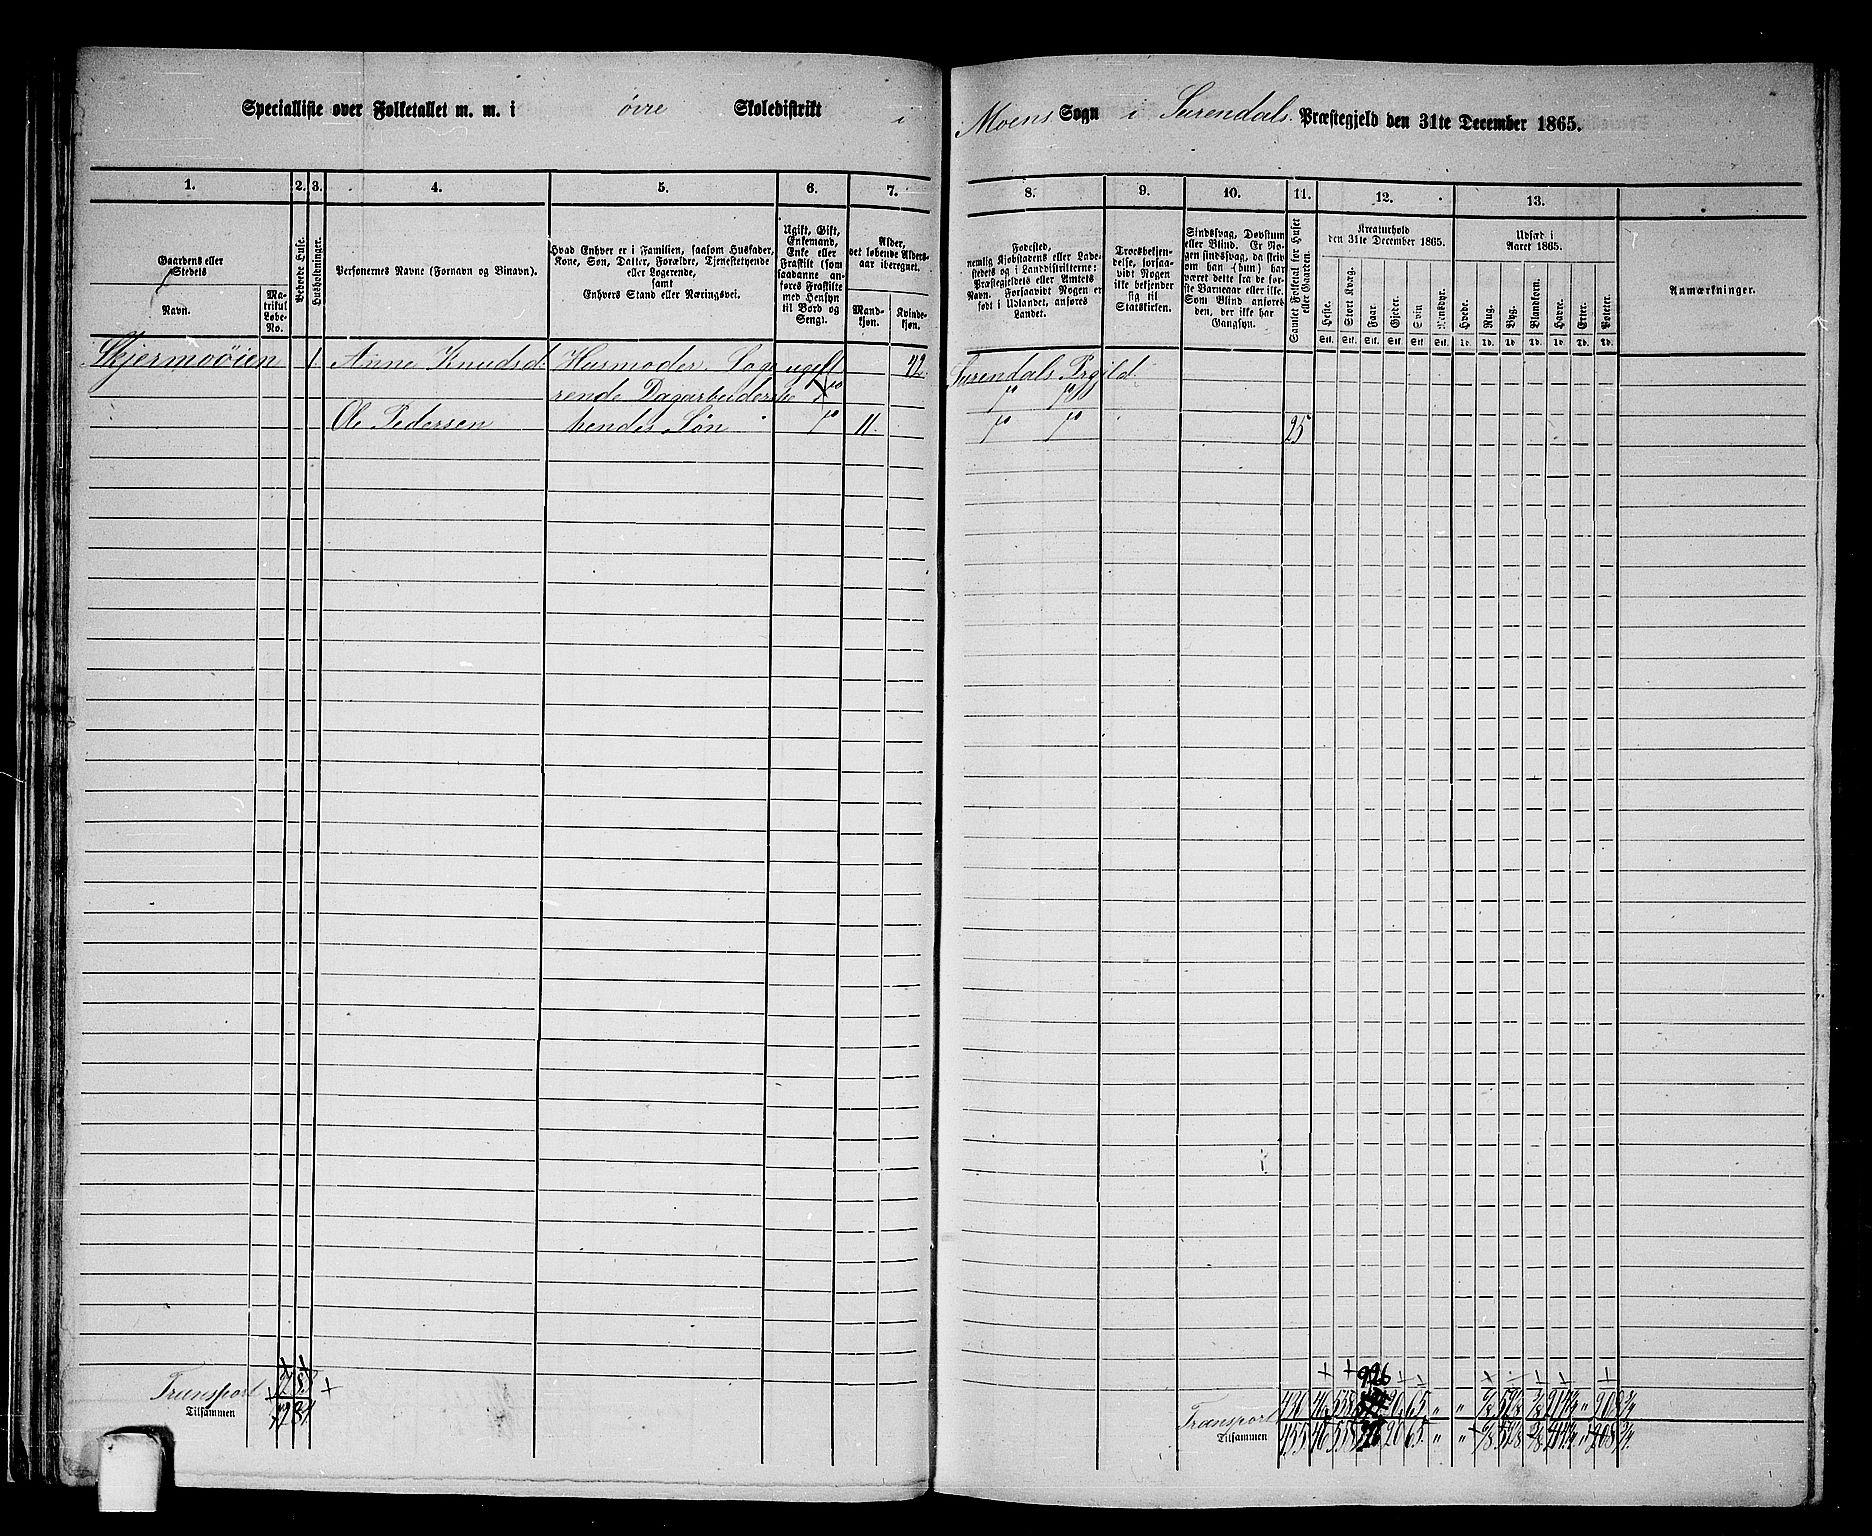 Specialliste over Folketallet m. m. i øvre Skoledistrikt i Moens Sogn i Surendals Præstegjeld den 31te December 1865.
1. 2. 3. 4. 5. 6. 7. 8. 9. 10. 11. 12. 13.
Gaardens eller Stedets
Navn.
Matrikul Løbe-No.
Beboede Huse.
Husholdninger.
Personernes Navne (Fornavn og Binavn).
Hvad Enhver er i Familien, saasom Husfader,
Kone, Søn, Datter, Forældre, Tjenestetyende
eller Logerende,
samt
Enhvers Stand eller Næringsvei.
Ugift, Gift,
Enkemand,
Enke eller
Fraskilt (som
saadanne an-
føres Fraskilte
med Hensyn
til Bord og
Seng).
Alder,
det løbende Alders-
aar iberegnet.
Mand-
kjøn.
Kvinde-
kjøn.
Fødested,
nemlig Kjøbstadens eller Lade-
stedets og i Landdistrikterne:
Præstegjeldets eller Amtets
Navn. Forsaavidt Nogen er
født i Udlandet, anføres
Landet.
Troesbekjen-
delse, forsaa-
vidt Nogen
ikke bekjender
sig til
Statskirken.
Sindssvag, Døvstum
eller Blind. Er No-
gen sindssvag, da skriv
om han (hun) har
været dette fra de før-
ste Barneaar eller ikke.
Som Blind anføres
den, der ikke har
Gangsyn.
Samlet Folketal for Huset
eller Gaarden.
Kreaturhold
den 31te December 1865.
Heste.
Stort Kvæg.
Faar.
Gjeder.
Svin
Rensdyr.
Stk. Stk. Stk. Stk. Stk. Stk.
Udsæd i
Aaret 1865.
Hvede.
Rug.
Byg.
Blandkorn.
Havre.
Erter.
Poteter.
Td. Td. Td. Td. Td. Td. Td.
Anmærkninger.
Skjermoøien 1 Anne Knudsd: Husmoder Loge ugift 42 Surendals Prgild
rende Dagarbeiderske
Ole Pedersen hendes Søn 11. 25
Transport
Tilsammen
926
Transport
Tilsammen